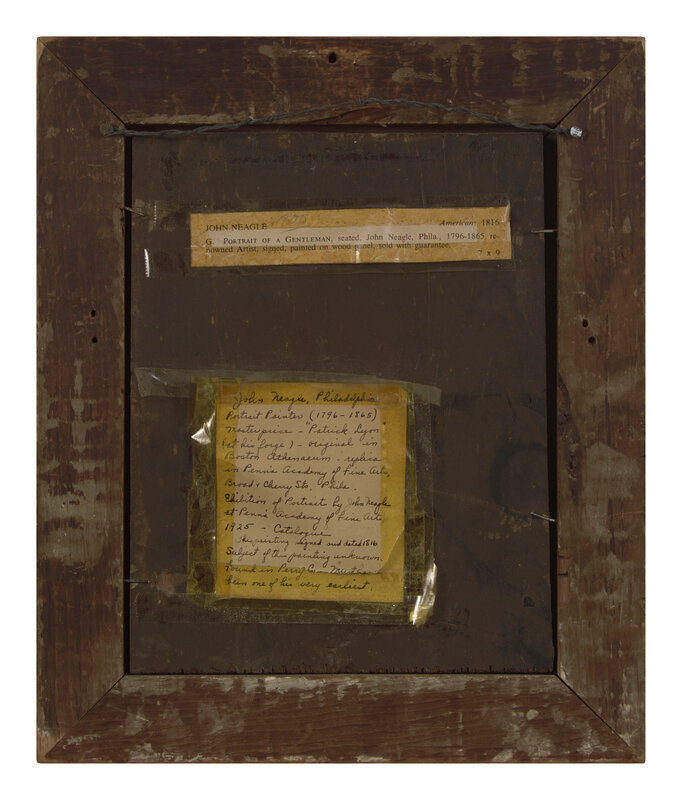 JOHN NEAGLE American: 1816
G. PORTRAIT OF A GENTLEMAN, seated. John Neagle, Phila., 1796-1865, re-
nowned Artist, signed, painted on wood panel, sold with guarantee.
7 x 9
John Neagle, Philadelphia
Portrait Painter (1796-1865)
Masterpiece - "Patrick Lyon
(at his forge) - original in
Boston Athenaeum - replica
in Penn'a Academy of Fine Arts,
Broad & Cherry Sts. Phila.
Exhibition of Portrait by John Neagle
at Penn'a Academy of Fine Arts
1925 - Catalogue
This painting signed and dated 1816
Subject of the painting unknown.
Found in Perry Co. Must have
been one of his very earliest.